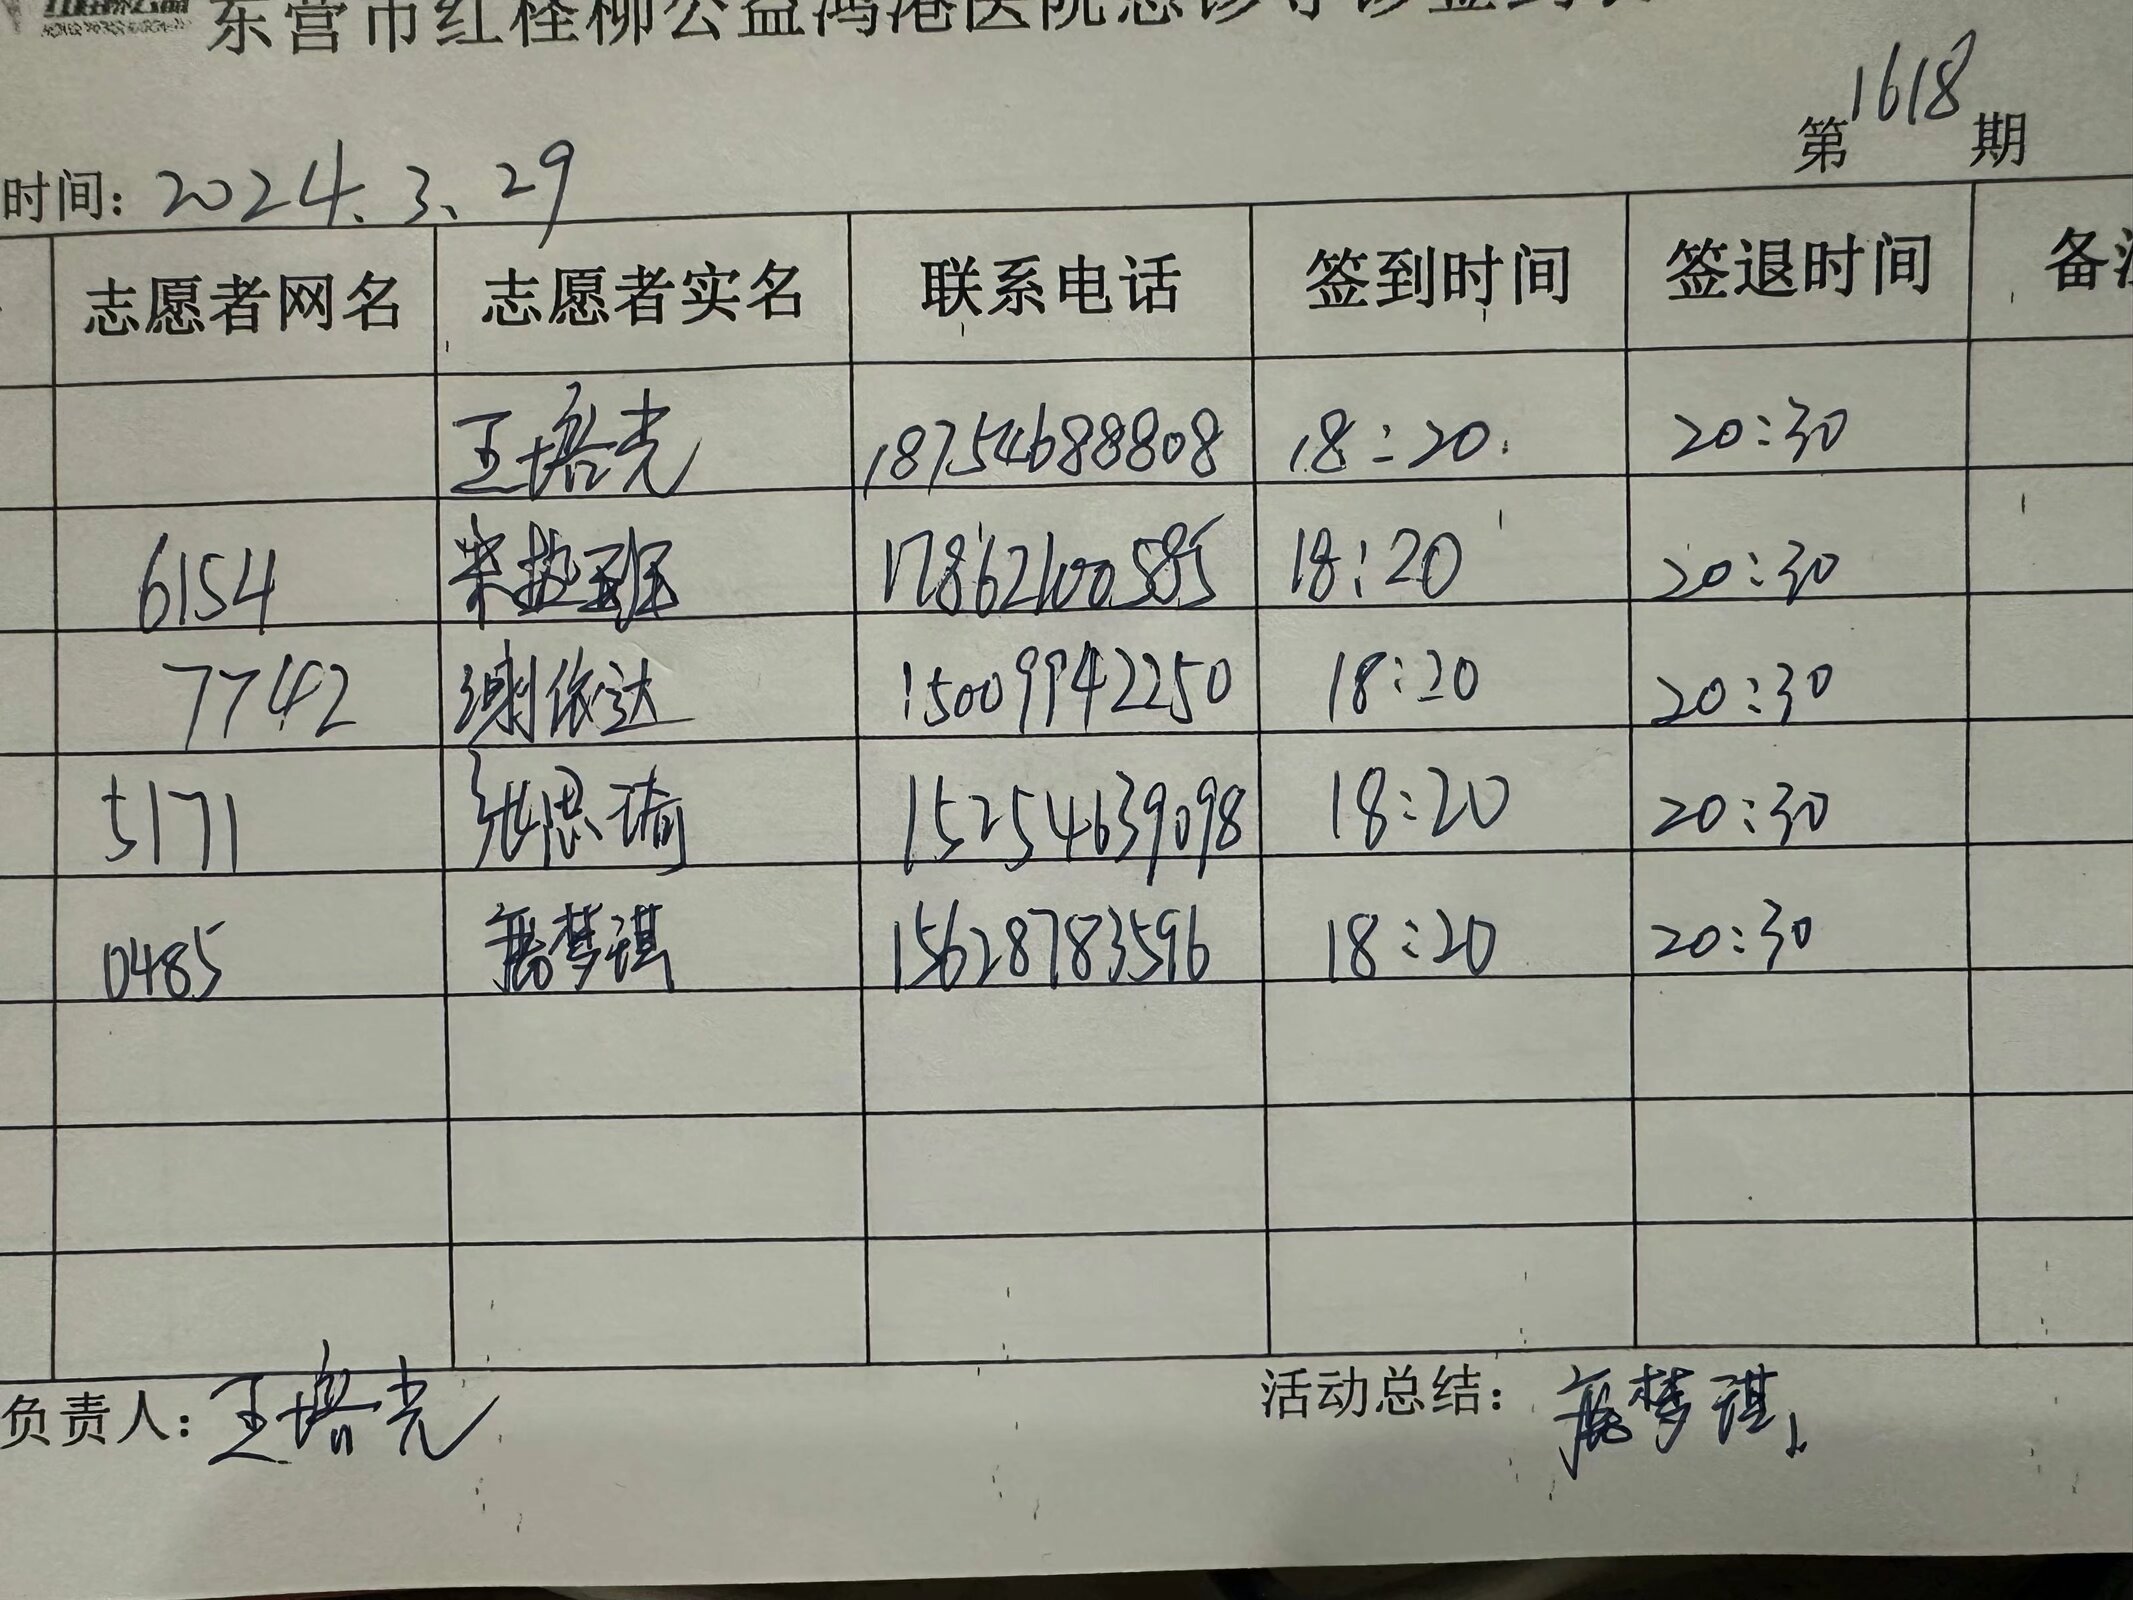 东营市红柽柳公益鸿港医院急诊导诊签到表
第1618期
时间：2024.3.29
志愿者网名 志愿者实名 联系电话 签到时间 签退时间 备注
王培光 18754688808 18:20 20:30
6154 17862100585 18:20 20:30
7742 谢依达 15009942250 18:20 20:30
5171 张思瑜 15254639098 18:20 20:30
0485 鹿梦琪 15628783596 18:20 20:30
负责人：王培光 活动总结：鹿梦琪